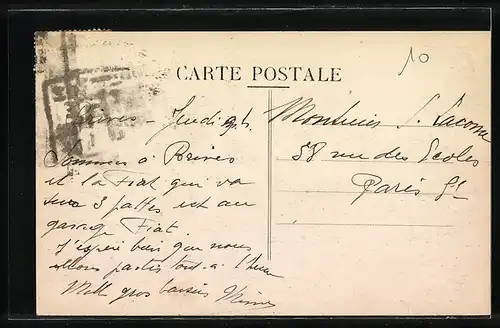 10
CARTE POSTALE
Brives - Jeudi 9h.
Sommes à Brives
et la Fiat qui va
sur 3 pattes est au
garage Fiat.
J'espère bien que nous
allons partir tout-à l'heure
Mille gros baisers
Monsieur S. Lacome
58 rue des Ecoles
Paris 5e